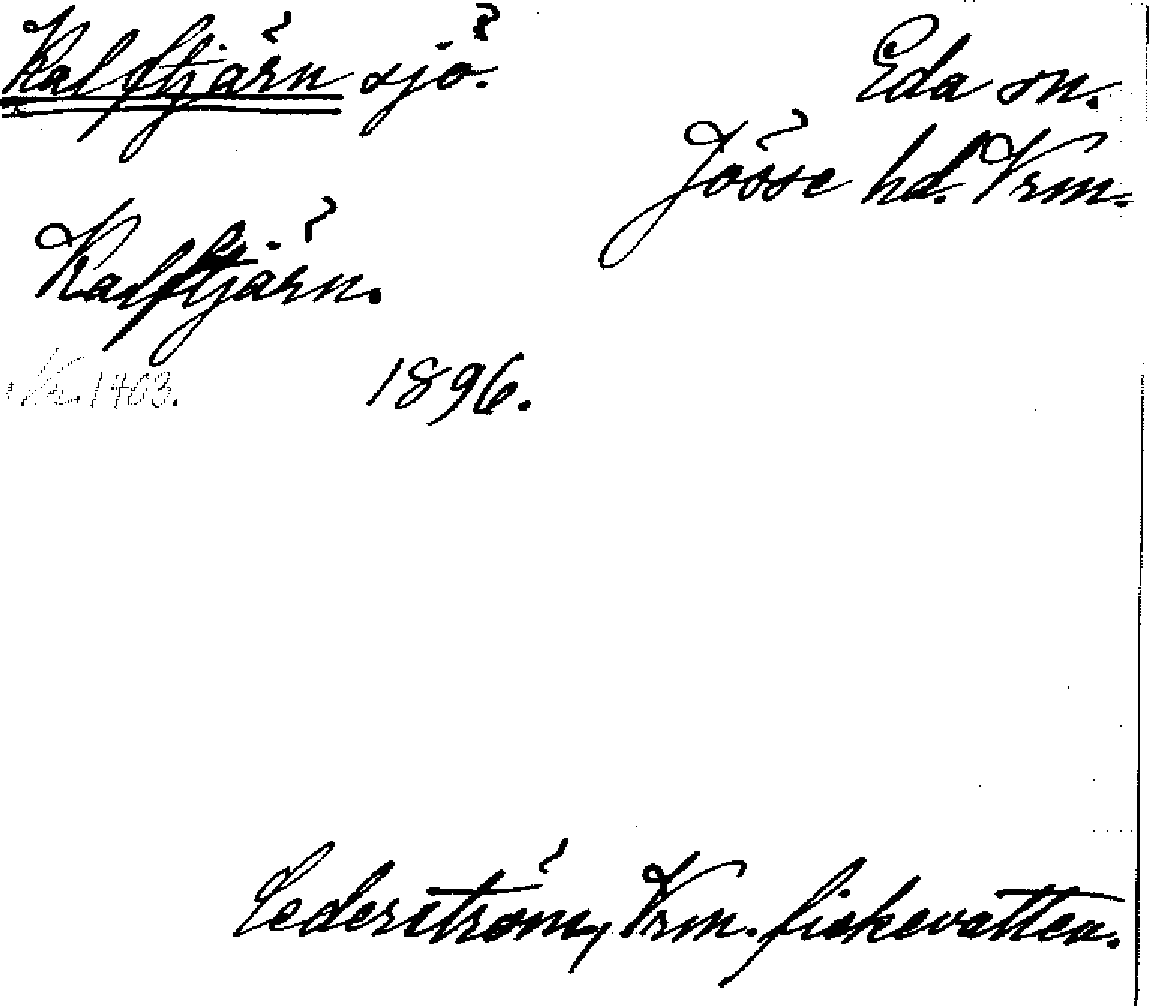 Kalftjärn sjö.
Eda sn.
Jösse hd. Vrm.
Kalftjärn.
1896.
Cederström, Vrm. fiskevatten.